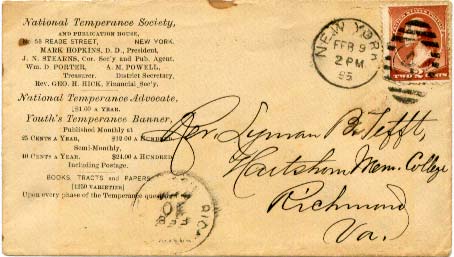 National Temperance Society,
AND PUBLICATION HOUSE,
No. 58 READE STREET, NEW YORK.
MARK HOPKINS, D. D., President,
J. N. STEARNS, Cor. Sec'y and Pub. Agent.
Wm. D PORTER, A. M. POWELL,
Treasurer. District Secretary.
Rev. GEO. H. HICK, Financial Sec'y.
National Temperance Advocate,
$1.00 A YEAR.
Youth's Temperance Banner,
Published Monthly at
25 CENTS A YEAR. $12 00 A HUNDRED.
Semi-Monthly,
40 CENTS A YEAR. $24.00 A HUNDRED
Including Postage.
BOOKS, TRACTS and PAPERS
[1250 VARIETIES]
Upon every phase of the Temperance question
NEW YORK
FEB 9
2 PM
85
TWO CENTS
Rev. Lyman B. Tefft,
Hartshorn Mem. College
Richmond
Va.